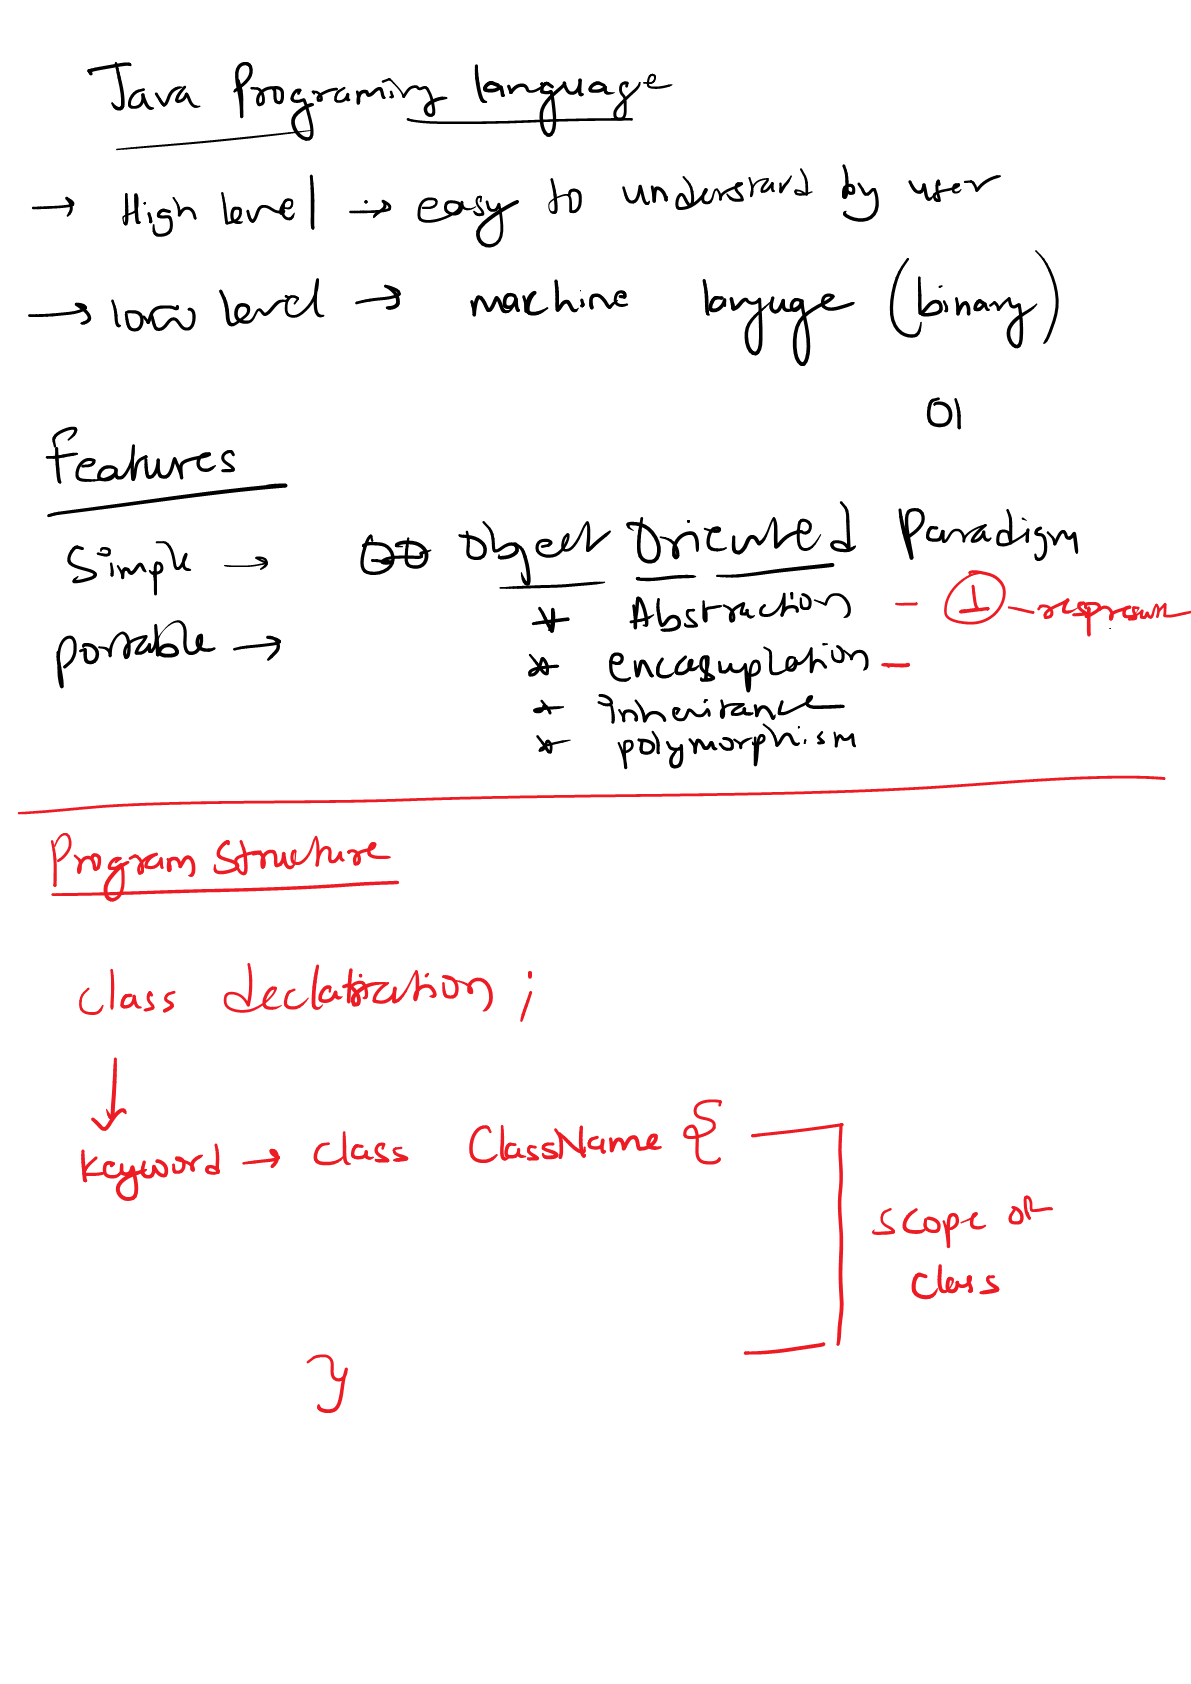 Java Programing language
→ High level → easy to understand by user
→ low level → machine language (binary)
01
Features
Simple → Object Oriented Paradigm
* Abstraction - 1 -
portable →
* encasuplation -
* Inheritance
* polymorphism
Program Structure
class declaration ;
↓
keyword → class ClassName {
scope of
class
}